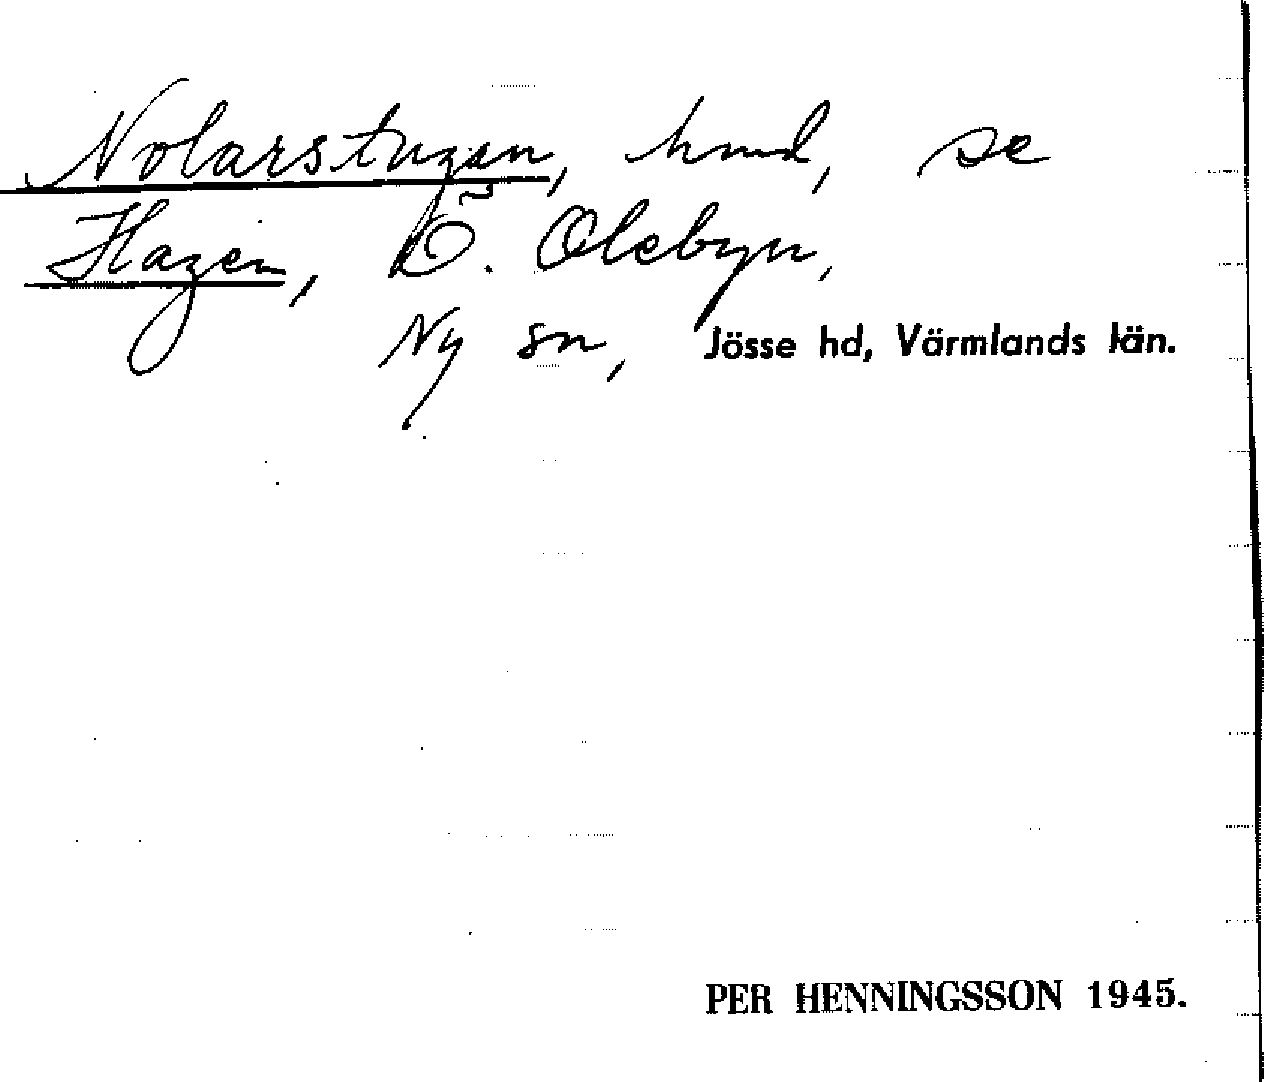 Nolarstugan, hmd, se
Hagen, Ö. Olebyn,
Ny sn, Jösse hd, Värmlands län.
PER HENNINGSSON 1945.